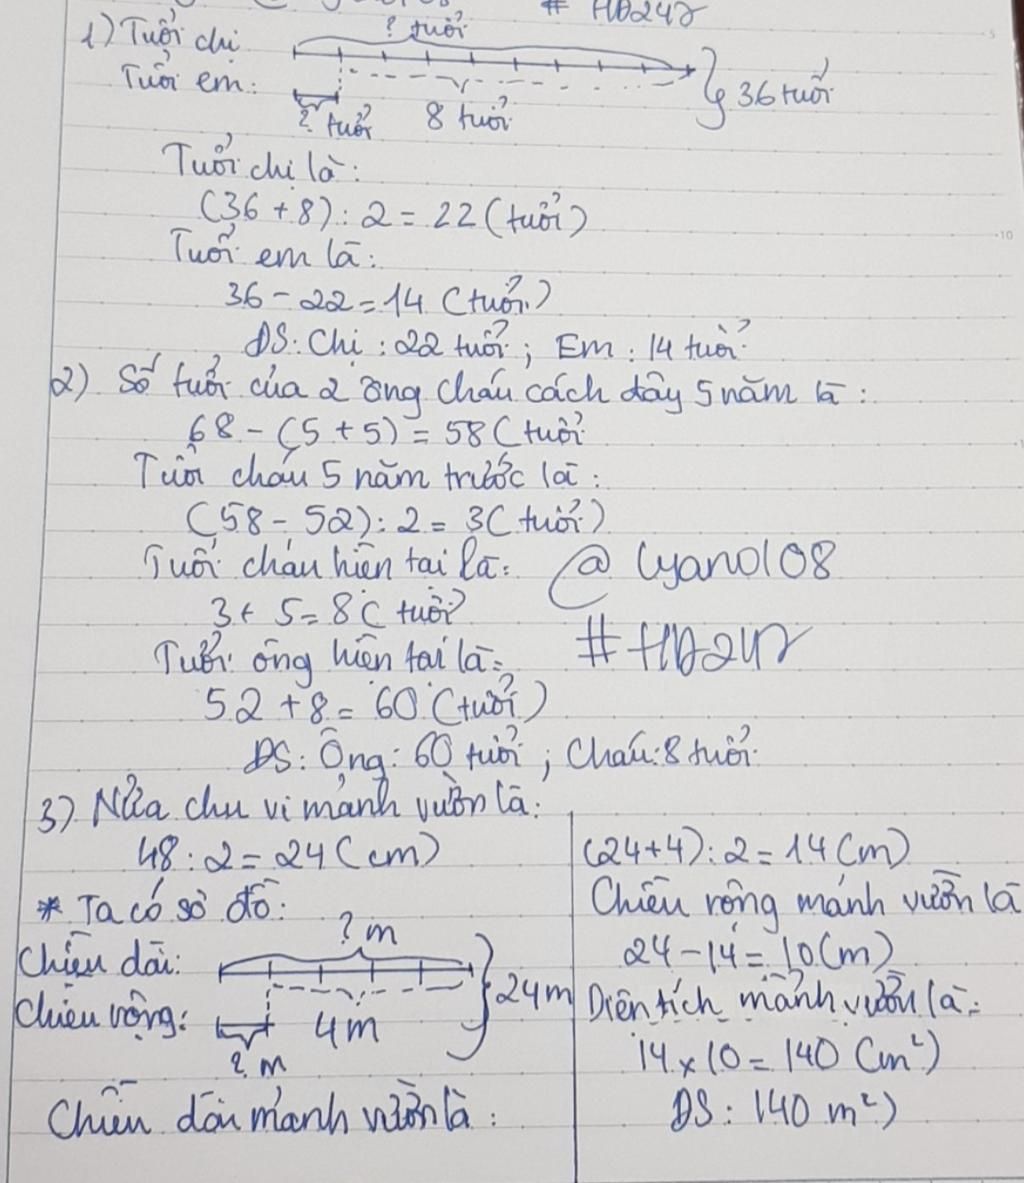 # HD247
1) Tuổi chị
? tuổi
Tuổi em:
36 tuổi
? tuổi
8 tuổi
Tuổi chị là:
(36 + 8) : 2 = 22 (tuổi)
Tuổi em là:
36 - 22 = 14 (tuổi)
ĐS: Chị : 22 tuổi ; Em : 14 tuổi
2) Số tuổi của 2 ông cháu cách đây 5 năm là :
68 - (5 + 5) = 58 (tuổi
Tuổi cháu 5 năm trước là :
(58 - 52) : 2 = 3 (tuổi)
Tuổi cháu hiện tại là:
@ Lyand108
3 + 5 = 8 ( tuổi)
# HD247
Tuổi ông hiện tại là:
52 + 8 = 60 (tuổi)
ĐS: Ông: 60 tuổi ; Cháu: 8 tuổi
3) Nửa chu vi mảnh vườn là:
48 : 2 = 24 (cm)
* Ta có sơ đồ:
? m
Chiều dài:
24m
Chiều rộng:
4m
? m
Chiều dài mảnh vườn là :
(24+4) : 2 = 14 (m)
Chiều rộng mảnh vườn là
24 - 14 = 10 (m)
Diện tích mảnh vườn là:
14 x 10 = 140 (m²)
ĐS : 140 m²)